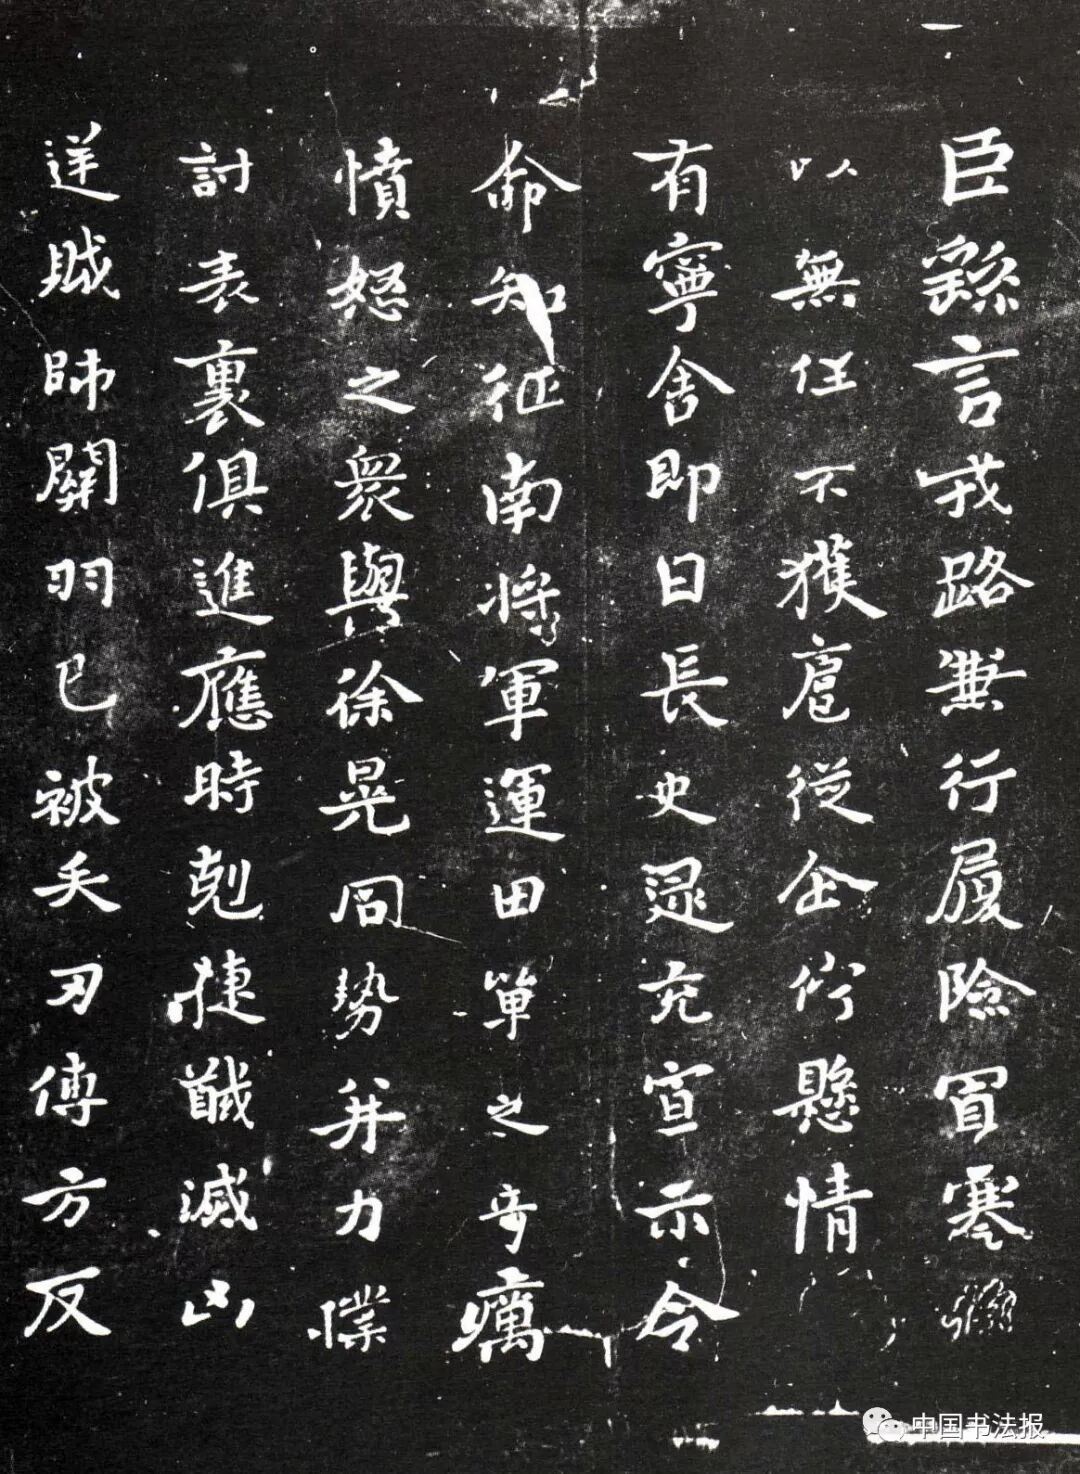 臣繇言戎路兼行履險冒寒
以無任不獲扈從企佇懸情
有寧舍即日長史逯充宣示令
命知征南將軍運田單之奇厲
憤怒之衆與徐晃同勢并力撲
討表裏俱進應時剋捷馘滅凶
逆賊帥關羽已被矢刃傅方反
中国书法报